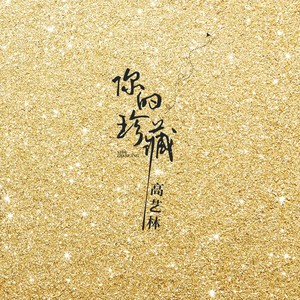 你的
珍藏
高艺林